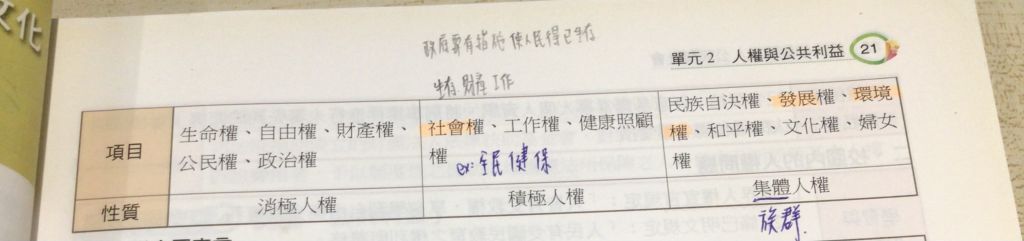 文化
政府要有措施 使人民得已生存
生存 財產 工作
單元2 人權與公共利益 21
項目
生命權、自由權、財產權、
公民權、政治權
社會權、工作權、健康照顧
權
ex: 全民健保
民族自決權、發展權、環境
權、和平權、文化權、婦女
權
性質
消極人權
積極人權
集體人權
族群